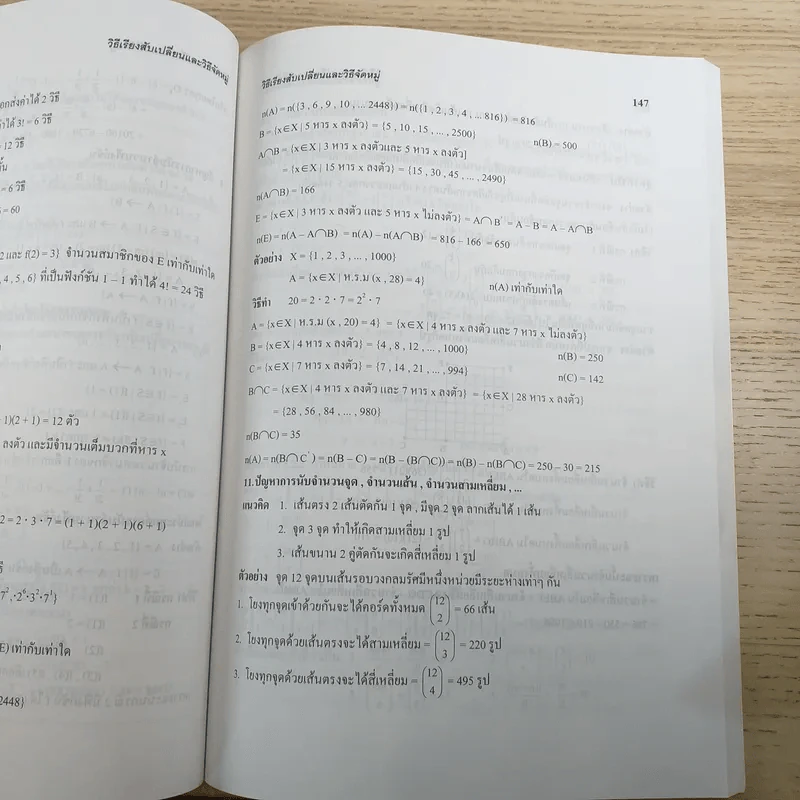 วิธีเรียงสับเปลี่ยนและวิธีจัดหมู่
อกส่งค่าได้ 2 วิธี
ได้ 3! = 6 วิธี
= 12 วิธี
= 6 วิธี
= 60
2 และ f(2) = 3} จำนวนสมาชิกของ E เท่ากับเท่าใด
, 4, 5, 6} ที่เป็นฟังก์ชัน 1 – 1 ทำได้ 4! = 24 วิธี
+ 1)(2 + 1) = 12 ตัว
ลงตัว และมีจำนวนเต็มบวกที่หาร x
2 = 2 · 3 · 7 = (1 + 1)(2 + 1)(6 + 1)
7², ·2⁶·3²·7¹}
E) เท่ากับเท่าใด
2448}
วิธีเรียงสับเปลี่ยนและวิธีจัดหมู่
147
n(A) = n({3 , 6 , 9 , 10 , ... 2448}) = n({1 , 2 , 3 , 4 , ... 816}) = 816
B = {x∈X | 5 หาร x ลงตัว} = {5 , 10 , 15 , ... , 2500} n(B) = 500
A∩B = {x∈X | 3 หาร x ลงตัวและ 5 หาร x ลงตัว]
= {x∈X | 15 หาร x ลงตัว} = {15 , 30 , 45 , ... , 2490}
n(A∩B) = 166
E = {x∈X | 3 หาร x ลงตัว และ 5 หาร x ไม่ลงตัว} = A∩B' = A – B = A – A∩B
n(E) = n(A – A∩B) = n(A) – n(A∩B) = 816 – 166 = 650
ตัวอย่าง X = {1 , 2 , 3 , ... , 1000}
A = {x∈X | ห.ร.ม (x , 28) = 4} n(A) เท่ากับเท่าใด
วิธีทำ 20 = 2 · 2 · 7 = 2² · 7
A = {x∈X | ห.ร.ม (x , 20) = 4} = {x∈X | 4 หาร x ลงตัว และ 7 หาร x ไม่ลงตัว}
B = {x∈X | 4 หาร x ลงตัว} = {4 , 8 , 12 , ... , 1000} n(B) = 250
C = {x∈X | 7 หาร x ลงตัว} = {7 , 14 , 21 , ... , 994} n(C) = 142
B∩C = {x∈X | 4 หาร x ลงตัว และ 7 หาร x ลงตัว} = {x∈X | 28 หาร x ลงตัว}
= {28 , 56 , 84 , ... , 980}
n(B∩C) = 35
n(A) = n(B∩C') = n(B – C) = n(B – (B∩C)) = n(B) – n(B∩C) = 250 – 30 = 215
11.ปัญหาการนับจำนวนจุด , จำนวนเส้น , จำนวนสามเหลี่ยม , ...
แนวคิด 1. เส้นตรง 2 เส้นตัดกัน 1 จุด , มีจุด 2 จุด ลากเส้นได้ 1 เส้น
2. จุด 3 จุด ทำให้เกิดสามเหลี่ยม 1 รูป
3. เส้นขนาน 2 คู่ตัดกันจะเกิดสี่เหลี่ยม 1 รูป
ตัวอย่าง จุด 12 จุดบนเส้นรอบวงกลมรัศมีหนึ่งหน่วยมีระยะห่างเท่าๆ กัน
1. โยงทุกจุดเข้าด้วยกันจะได้คอร์ดทั้งหมด (12 2) = 66 เส้น
2. โยงทุกจุดด้วยเส้นตรงจะได้สามเหลี่ยม = (12 3) = 220 รูป
3. โยงทุกจุดด้วยเส้นตรงจะได้สี่เหลี่ยม = (12 4) = 495 รูป